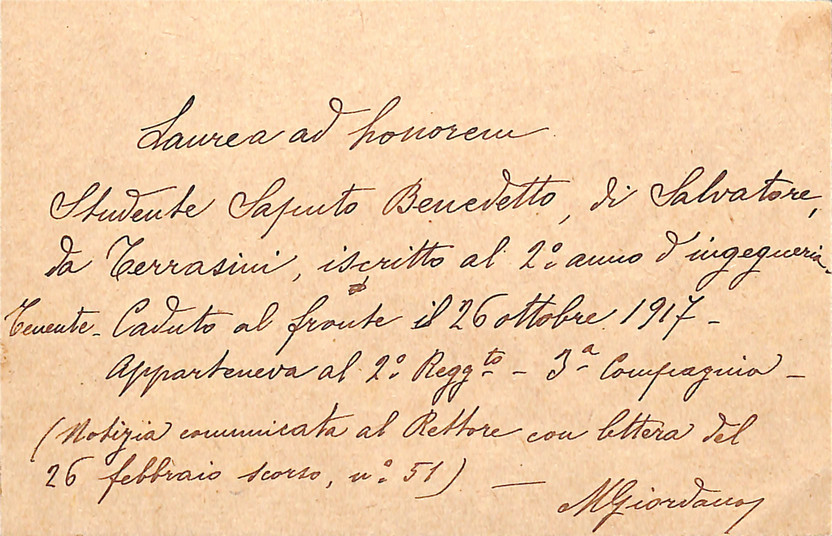 Laurea ad honorem
Studente Saputo Benedetto, di Salvatore,
da Terrasini, iscritto al 2º anno d'ingegneria.
Tenente - Caduto al fronte il 26 ottobre 1917 -
Apparteneva al 2º Reggto - 3ª Compagnia -
(Notizia comunicata al Rettore con lettera del
26 febbraio scorso, nº 51) -
M Giordano